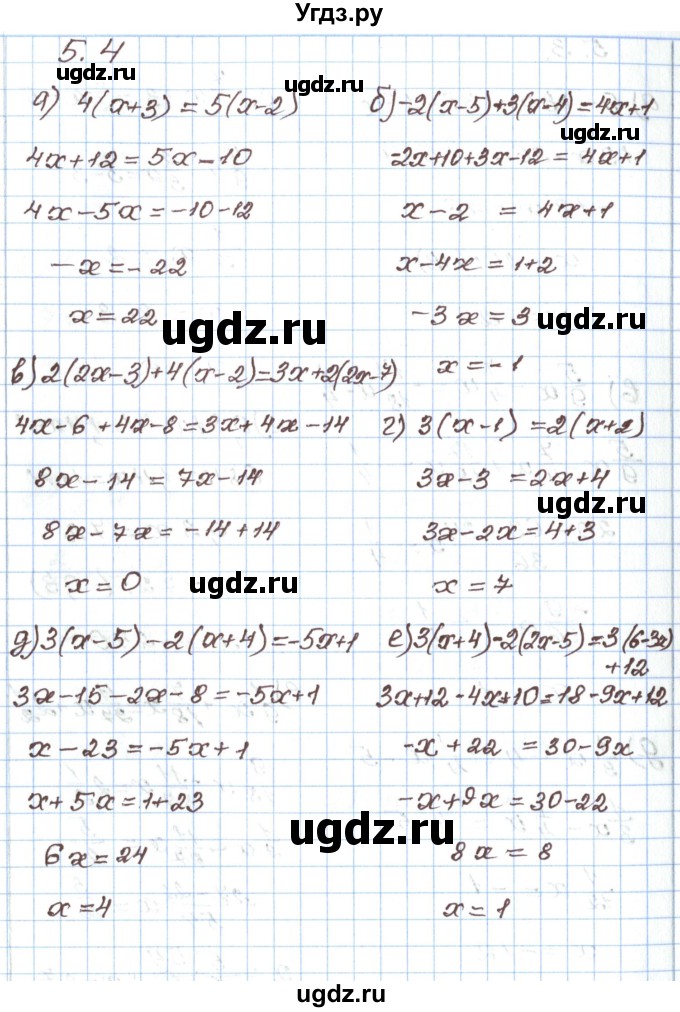 Угдз.ру
5.4
а) 4(x+3) = 5(x-2)
4x+12 = 5x-10
4x-5x = -10-12
-x = -22
x = 22
б) -2(x-5)+3(x-4) = 4x+1
-2x+10+3x-12 = 4x+1
x-2 = 4x+1
x-4x = 1+2
-3x = 3
x = -1
в) 2(2x-3)+4(x-2) = 3x+2(2x-7)
4x-6+4x-8 = 3x+4x-14
8x-14 = 7x-14
8x-7x = -14+14
x = 0
г) 3(x-1) = 2(x+2)
3x-3 = 2x+4
3x-2x = 4+3
x = 7
д) 3(x-5)-2(x+4) = -5x+1
3x-15-2x-8 = -5x+1
x-23 = -5x+1
x+5x = 1+23
6x = 24
x = 4
е) 3(x+4)-2(2x-5) = 3(6-3x)
+12
3x+12-4x+10 = 18-9x+12
-x+22 = 30-9x
-x+9x = 30-22
8x = 8
x = 1
ugdz.ru
ugdz.ru
ugdz.ru
ugdz.ru
ugdz.ru
ugdz.ru
ugdz.ru
ugdz.ru
ugdz.ru
ugdz.ru